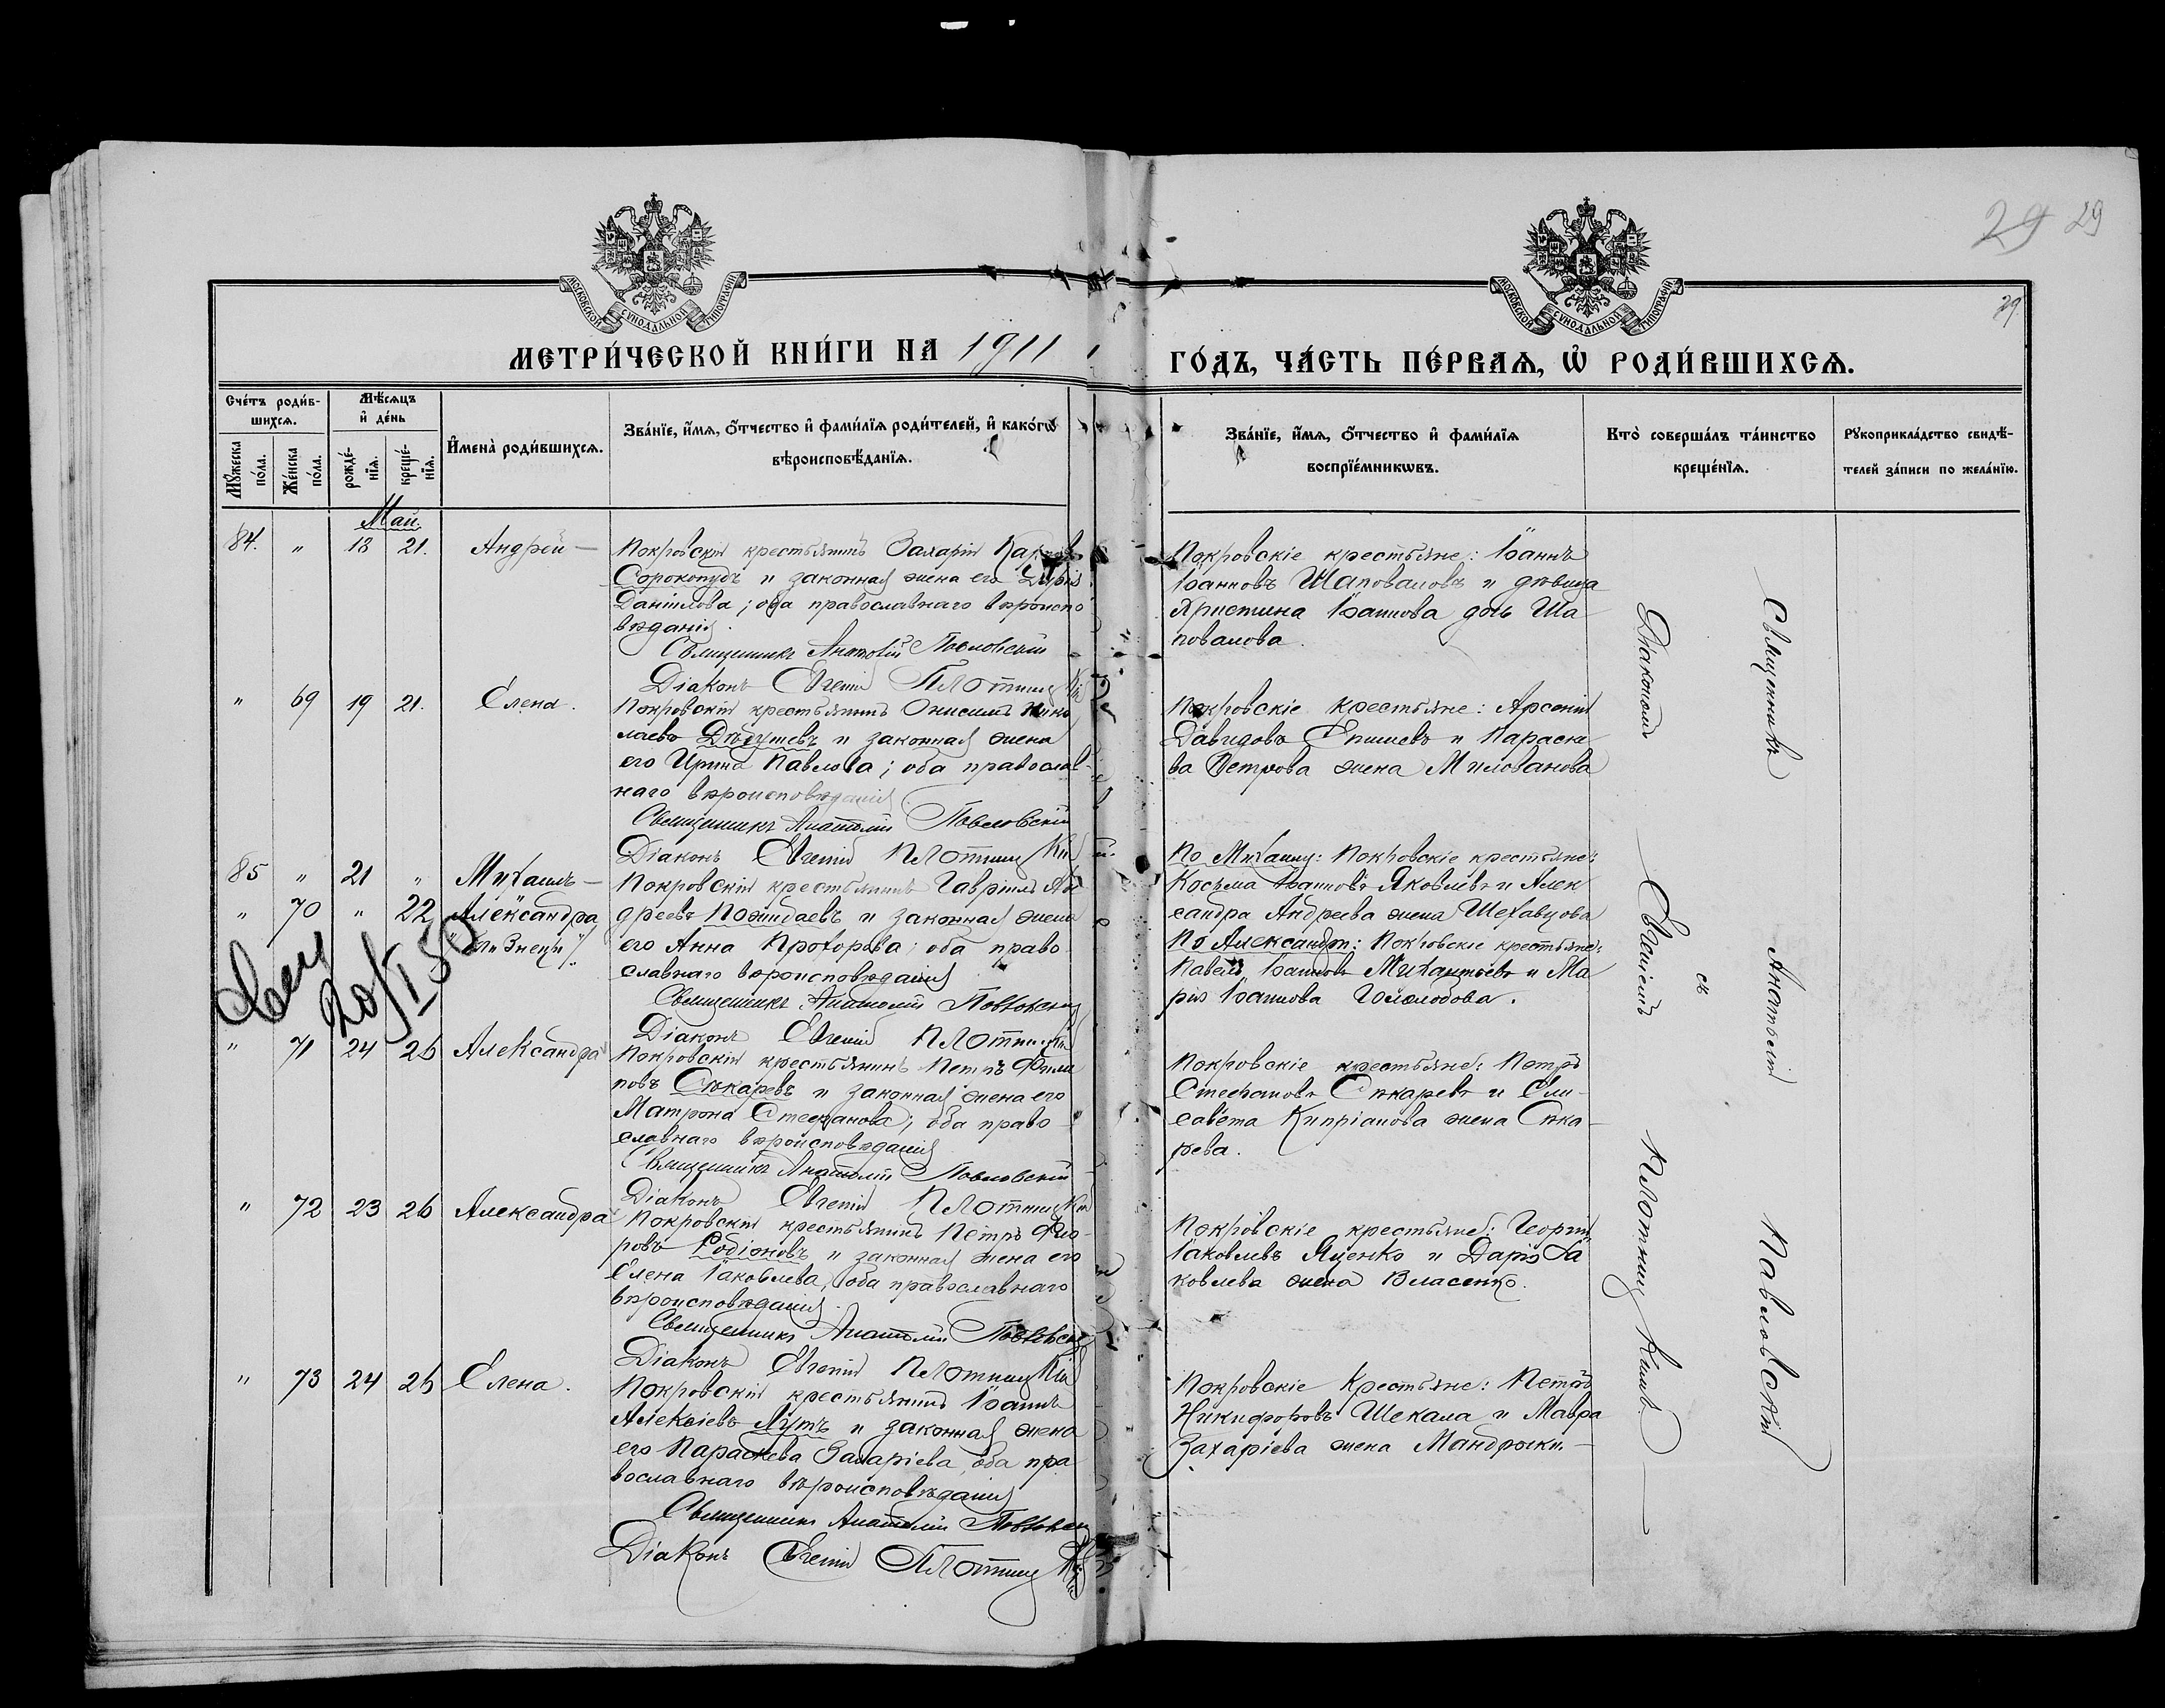 29 29
29
МОСКОВСКОЙ СѴНОДАЛЬНОЙ ТИПОГРАФІИ
МОСКОВСКОЙ СѴНОДАЛЬНОЙ ТИПОГРАФІИ
МЕТРИ́ЧЕСКОЙ КНИ́ГИ НА 1911
ГО́ДЪ, ЧА́СТЬ ПЕ́РВАѦ, Ѡ҆ РОДИ́ВШИХСѦ.
Сче́тъ роди́в-
шихсѧ.
Мѣ́сѧцъ
и҆ де́нь
Мꙋ́жеска по́ла.
Же́нска по́ла.
рожде́-нїѧ.
креще́-нїѧ.
И҆мена̀ роди́вшихсѧ.
Зва́нїе, и҆́мѧ, ѻ҆́тчество и҆ фами́лїѧ роди́телей, и҆ како́гѡ
вѣроисповѣ́данїѧ.
Зва́нїе, и҆́мѧ, ѻ҆́тчество и҆ фами́лїѧ
воспрїе́мникѡвъ.
Кто̀ соверша́лъ та́инство
креще́нїѧ.
Рꙋкоприкла́дство свидѣ́-
телей за́писи по жела́нїю.
Май.
84. " 18 21. Андрей —
Покровскій крестьянинъ Захарій Карповъ
Сорокопудъ и законная жена его Дарія
Даніилова; оба православнаго вѣроиспо
вѣданія.
Священникъ Анатолій Павловскій
Діаконъ Евгеній Плотницкій
Покровскіе крестьяне: Іоаннъ
Іоанновъ Шаповаловъ и дѣвица
Христина Іоаннова дочь Ша
повалова.
" 69 19 21. Елена.
Покровскій крестьянинъ Онисимъ Нико
лаевъ и законная жена
его Ирина Павлова; оба православ-
наго вѣроисповѣданія
Священникъ Анатолій Павловскій
Діаконъ Евгеній Плотницкій
Покровскіе крестьяне: Арсеній
Давидовъ Епишевъ и Параске
ва Петрова жена Милованова
85 " 21 " Михаилъ —
" 70 " 22 Александра
"близнецы"
20/I 50
Покровскій крестьянинъ Гавріилъ Ан
дреевъ Пожидаевъ и законная жена
его Анна Прохорова; оба право
славнаго вѣроисповѣданія
Священникъ Анатолій Павловскій
Діаконъ Евгеній Плотницкій
По Михаилу: Покровскіе крестьяне:
Косьма Іоанновъ Яковлевъ и Алек
сандра Андреева жена Шехавцова
По Александрѣ: Покровскіе крестьяне:
Павелъ Іоанновъ и Ма
рія Іоаннова
" 71 24 26 Александра
Покровскій крестьянинъ Петръ Филип
повъ Сѣкаревъ и законная жена его
Матрона Стефанова; оба право-
славнаго вѣроисповѣданія
Священникъ Анатолій Павловскій
Діаконъ Евгеній Плотницкій
Покровскіе крестьяне: Петръ
Стефановъ Сѣкаревъ и Ели-
савета Кипріанова жена Сѣка-
рева.
" 72 23 26 Александра
Покровскій крестьянинъ Петръ Фео-
ровъ Родіоновъ и законная жена его
Елена Іаковлева, оба православнаго
вѣроисповѣданія.
Священникъ Анатолій Павловскій
Діаконъ Евгеній Плотницкій
Покровскіе крестьяне: Георгій
Іаковлевъ Яценко и Дарія Іа
ковлева жена Власенко.
" 73 24 26 Елена.
Покровскій крестьянинъ Іоаннъ
Алексіевъ Лутъ и законная жена
его Параскева Захаріева, оба пра
вославнаго вѣроисповѣданія
Священникъ Анатолій Павловскій
Діаконъ Евгеній Плотницкій
Покровскіе крестьяне: Петръ
Никифоровъ Шекала и Мавра
Захаріева жена Мандрыки. —
Священникъ Анатолій Павловскій
съ
Діакономъ Евгеніемъ Плотницкимъ